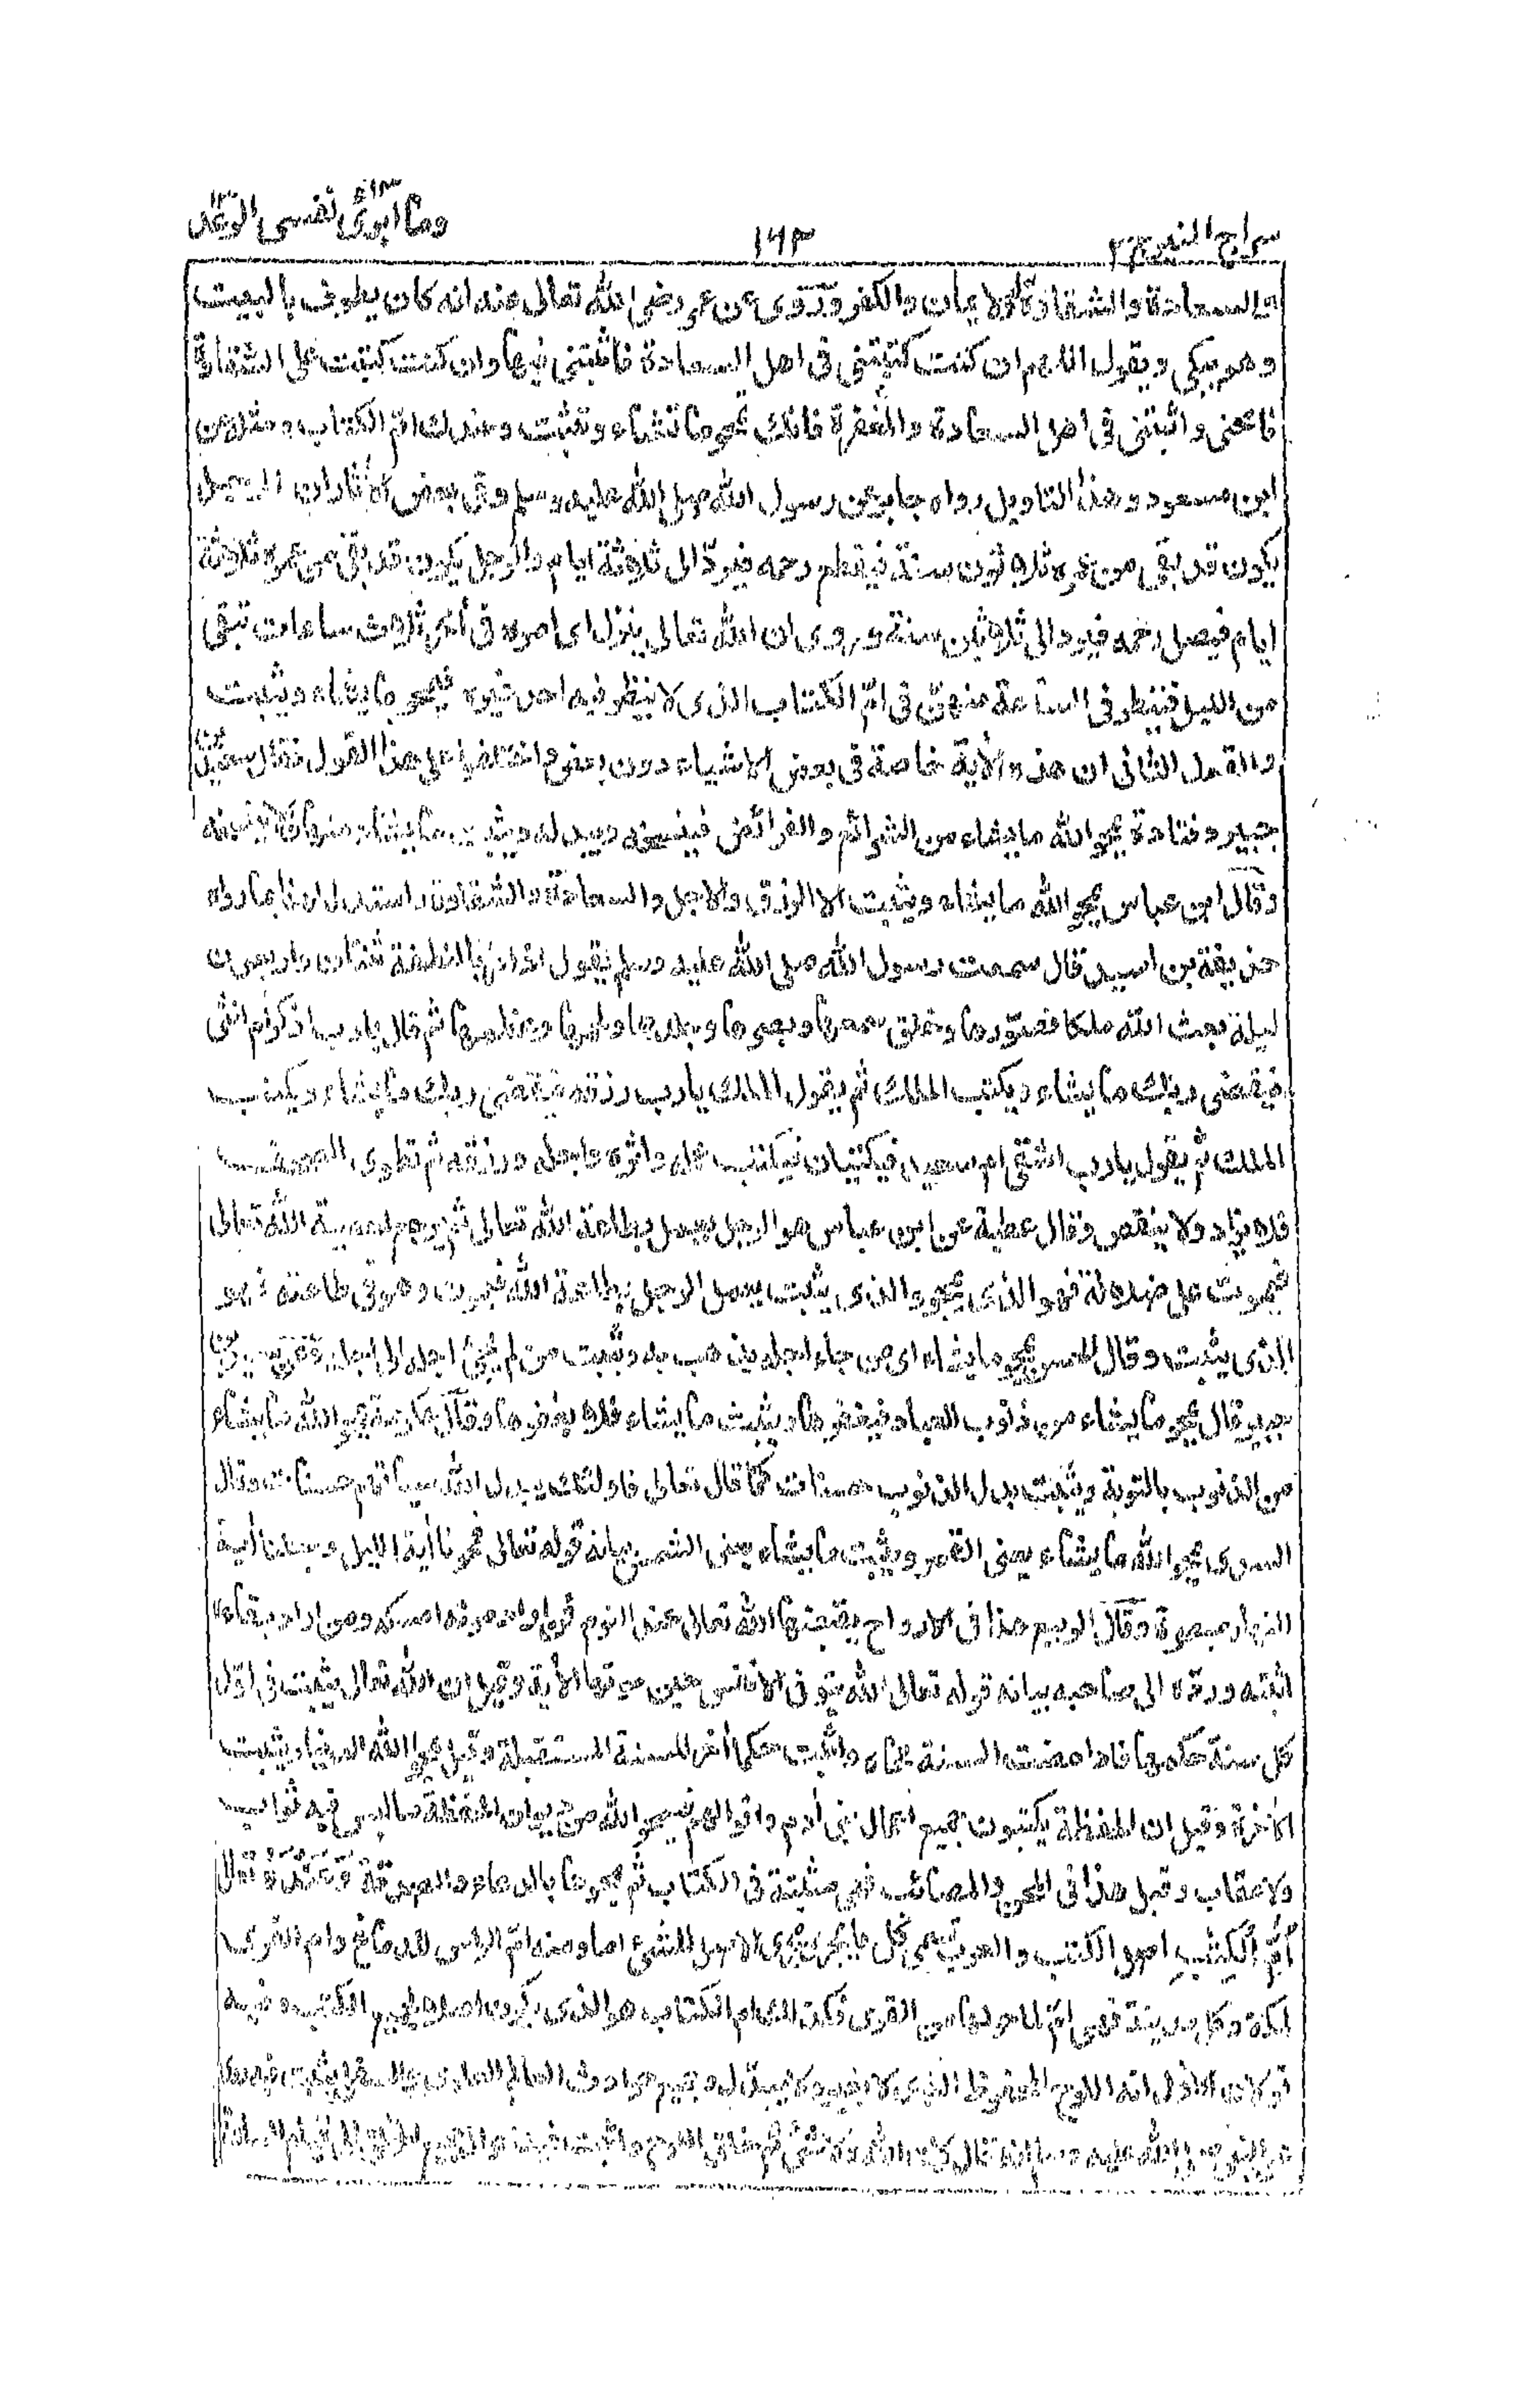 سراج المنير ج ٢
١٦٣
وما أبرئ نفسى الرعد
والسعادة والشقاوة والايمان والكفر وروى عن عمر رضى الله تعالى عنه انه كان يطوف بالبيت
وهو يبكى ويقول اللهم ان كنت كتبتنى فى اهل السعادة فاثبتنى فيها وان كنت كتبت على الشقاوة
فامحنى واثبتنى فى اهل السعادة والمغفرة فانك تمحو ما تشاء وتثبت وعندك ام الكتاب ومثله عن
ابن مسعود وهذا التاويل رواه جابر عن رسول الله صلى الله عليه وسلم وفى بعض الآثار ان الرجل
يكون قد بقى من عمره ثلاثون سنة فيقطع رحمه فيرد الى ثلاثة ايام والرجل يكون قد بقى من عمره ثلاثة
ايام فيصل رحمه فيرد الى ثلاثين سنة وروى ان الله تعالى ينزل اى امره فى أخر ثلاث ساعات تبقى
من الليل فينظر فى الساعة منهن فى ام الكتاب الذى لا ينظر فيه احد غيره فيمحو ما يشاء ويثبت
والقول الثانى ان هذه الأية خاصة فى بعض الاشياء دون بعض واختلفوا على هذا القول فقال سعيد بن
جبير وقتادة يمحو الله ما يشاء من الشرائع والفرائض فينسخه ويبدله ويثبت ما يشاء منها فلا ينسخه
وقال ابن عباس يمحو الله ما يشاء ويثبت الا الرزق والاجل والسعادة والشقاوة واستدل لهذا بما رواه
حذيفة بن اسيد قال سمعت رسول الله صلى الله عليه وسلم يقول اذا مر بالنطفة ثنتان واربعون
ليلة بعث الله ملكا فصورها وخلق سمعها وبصرها وجلدها ولحمها وعظامها ثم قال يا رب اذكر ام انثى
فيقضى ربك ما يشاء ويكتب الملك ثم يقول الملك يا رب رزقه فيقضى ربك ما يشاء ويكتب
الملك ثم يقول يا رب اشقى ام سعيد فيكتبان فيكتب عمله واثره واجله ورزقه ثم تطوى الصحف
فلا يزاد ولا ينقص وقال عطية عن ابن عباس هو الرجل يعمل بطاعة الله تعالى ثم يرجع لمعصية الله تعالى
فيموت على ضلالة فهو الذى يمحو والذى يثبت يعمل الرجل بطاعة الله فيموت وهو فى طاعته فهو
الذى يثبت وقال الحسن يمحو ما يشاء اى من جاء اجله يذهب به ويثبت من لم يجئ اجله الى اجله وعن سعيد بن
جبير قال يمحو ما يشاء من ذنوب العباد فيغفرها ويثبت ما يشاء فلا يغفرها وقال عكرمة يمحو الله ما يشاء
من الذنوب بالتوبة ويثبت بدل الذنوب حسنات كما قال تعالى فاولئك يبدل الله سيأتهم حسنات وقال
السدى يمحو الله ما يشاء يعنى القمر ويثبت ما يشاء يعنى الشمس بيانه قوله تعالى فمحونا أية الليل وجعلنا أية
النهار مبصرة وقال الربيع هذا فى الارواح يقبضها الله تعالى عند النوم فمن اراد موته امسكه ومن اراد بقاءه
اثبته ورده الى صاحبه بيانه قوله تعالى الله يتوفى الانفس حين موتها الأية وقيل ان الله تعالى يثبت فى اول
كل سنة حكمها فاذا مضت السنة محاه واثبت حكما أخر للسنة المستقبلة وقيل يمحو الله الدنيا ويثبت
الأخرة وقيل ان الحفظة يكتبون جميع اعمال بنى أدم واقوالهم فيمحو الله من ديوان الحفظة ما ليس فيه ثواب
ولا عقاب وقيل هذا فى المحن والمصائب فهى مثبتة فى الكتاب ثم يمحوها بالدعاء والصدقة وعنده تعالى
أم الكتب اصل الكتب والعرب تسمى كل ما يجرى مجرى الاصل للشئ اما ومنه ام الراس للدماغ وام القرى
لمكة وكل مدينة فهى ام لما حولها من القرى فكذلك ام الكتاب هو الذى يكون اصلا لجميع الكتب وفيه
قولان الاول انه اللوح المحفوظ الذى لا يغير ولا يبدل وجميع حوادث العالم العلوى والسفلى يثبت فيه
عن النبى صلى الله عليه وسلم انه قال كان الله ولا شئ ثم خلق اللوح واثبت فيه